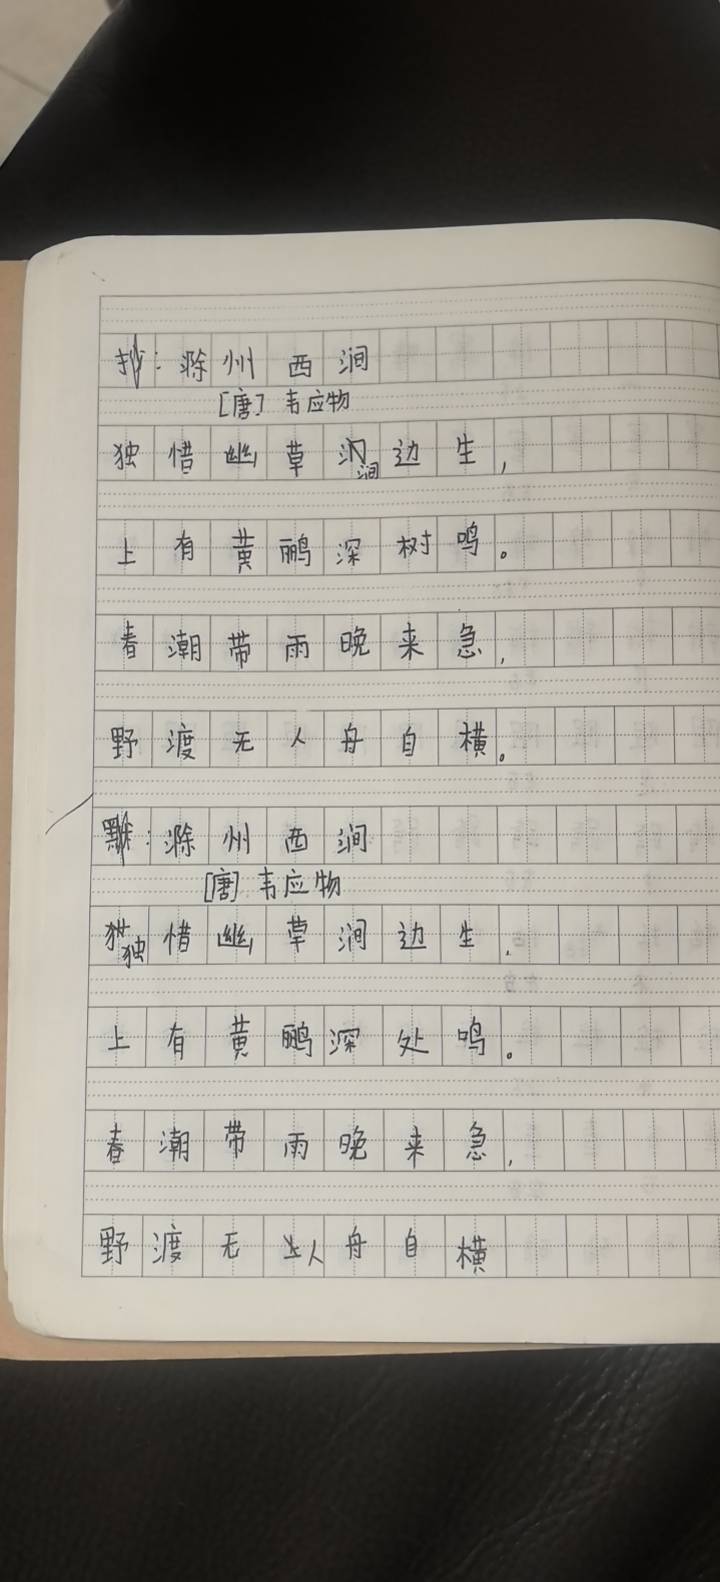 抄：滁州西涧
[唐]韦应物
独惜幽草涧边生，
上有黄鹂深树鸣。
春潮带雨晚来急，
野渡无人舟自横。
默：滁州西涧
[唐]韦应物
独惜幽草涧边生，
上有黄鹂深处鸣。
春潮带雨晚来急，
野渡无人舟自横